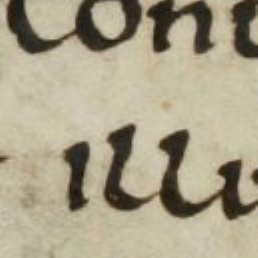 con
illu